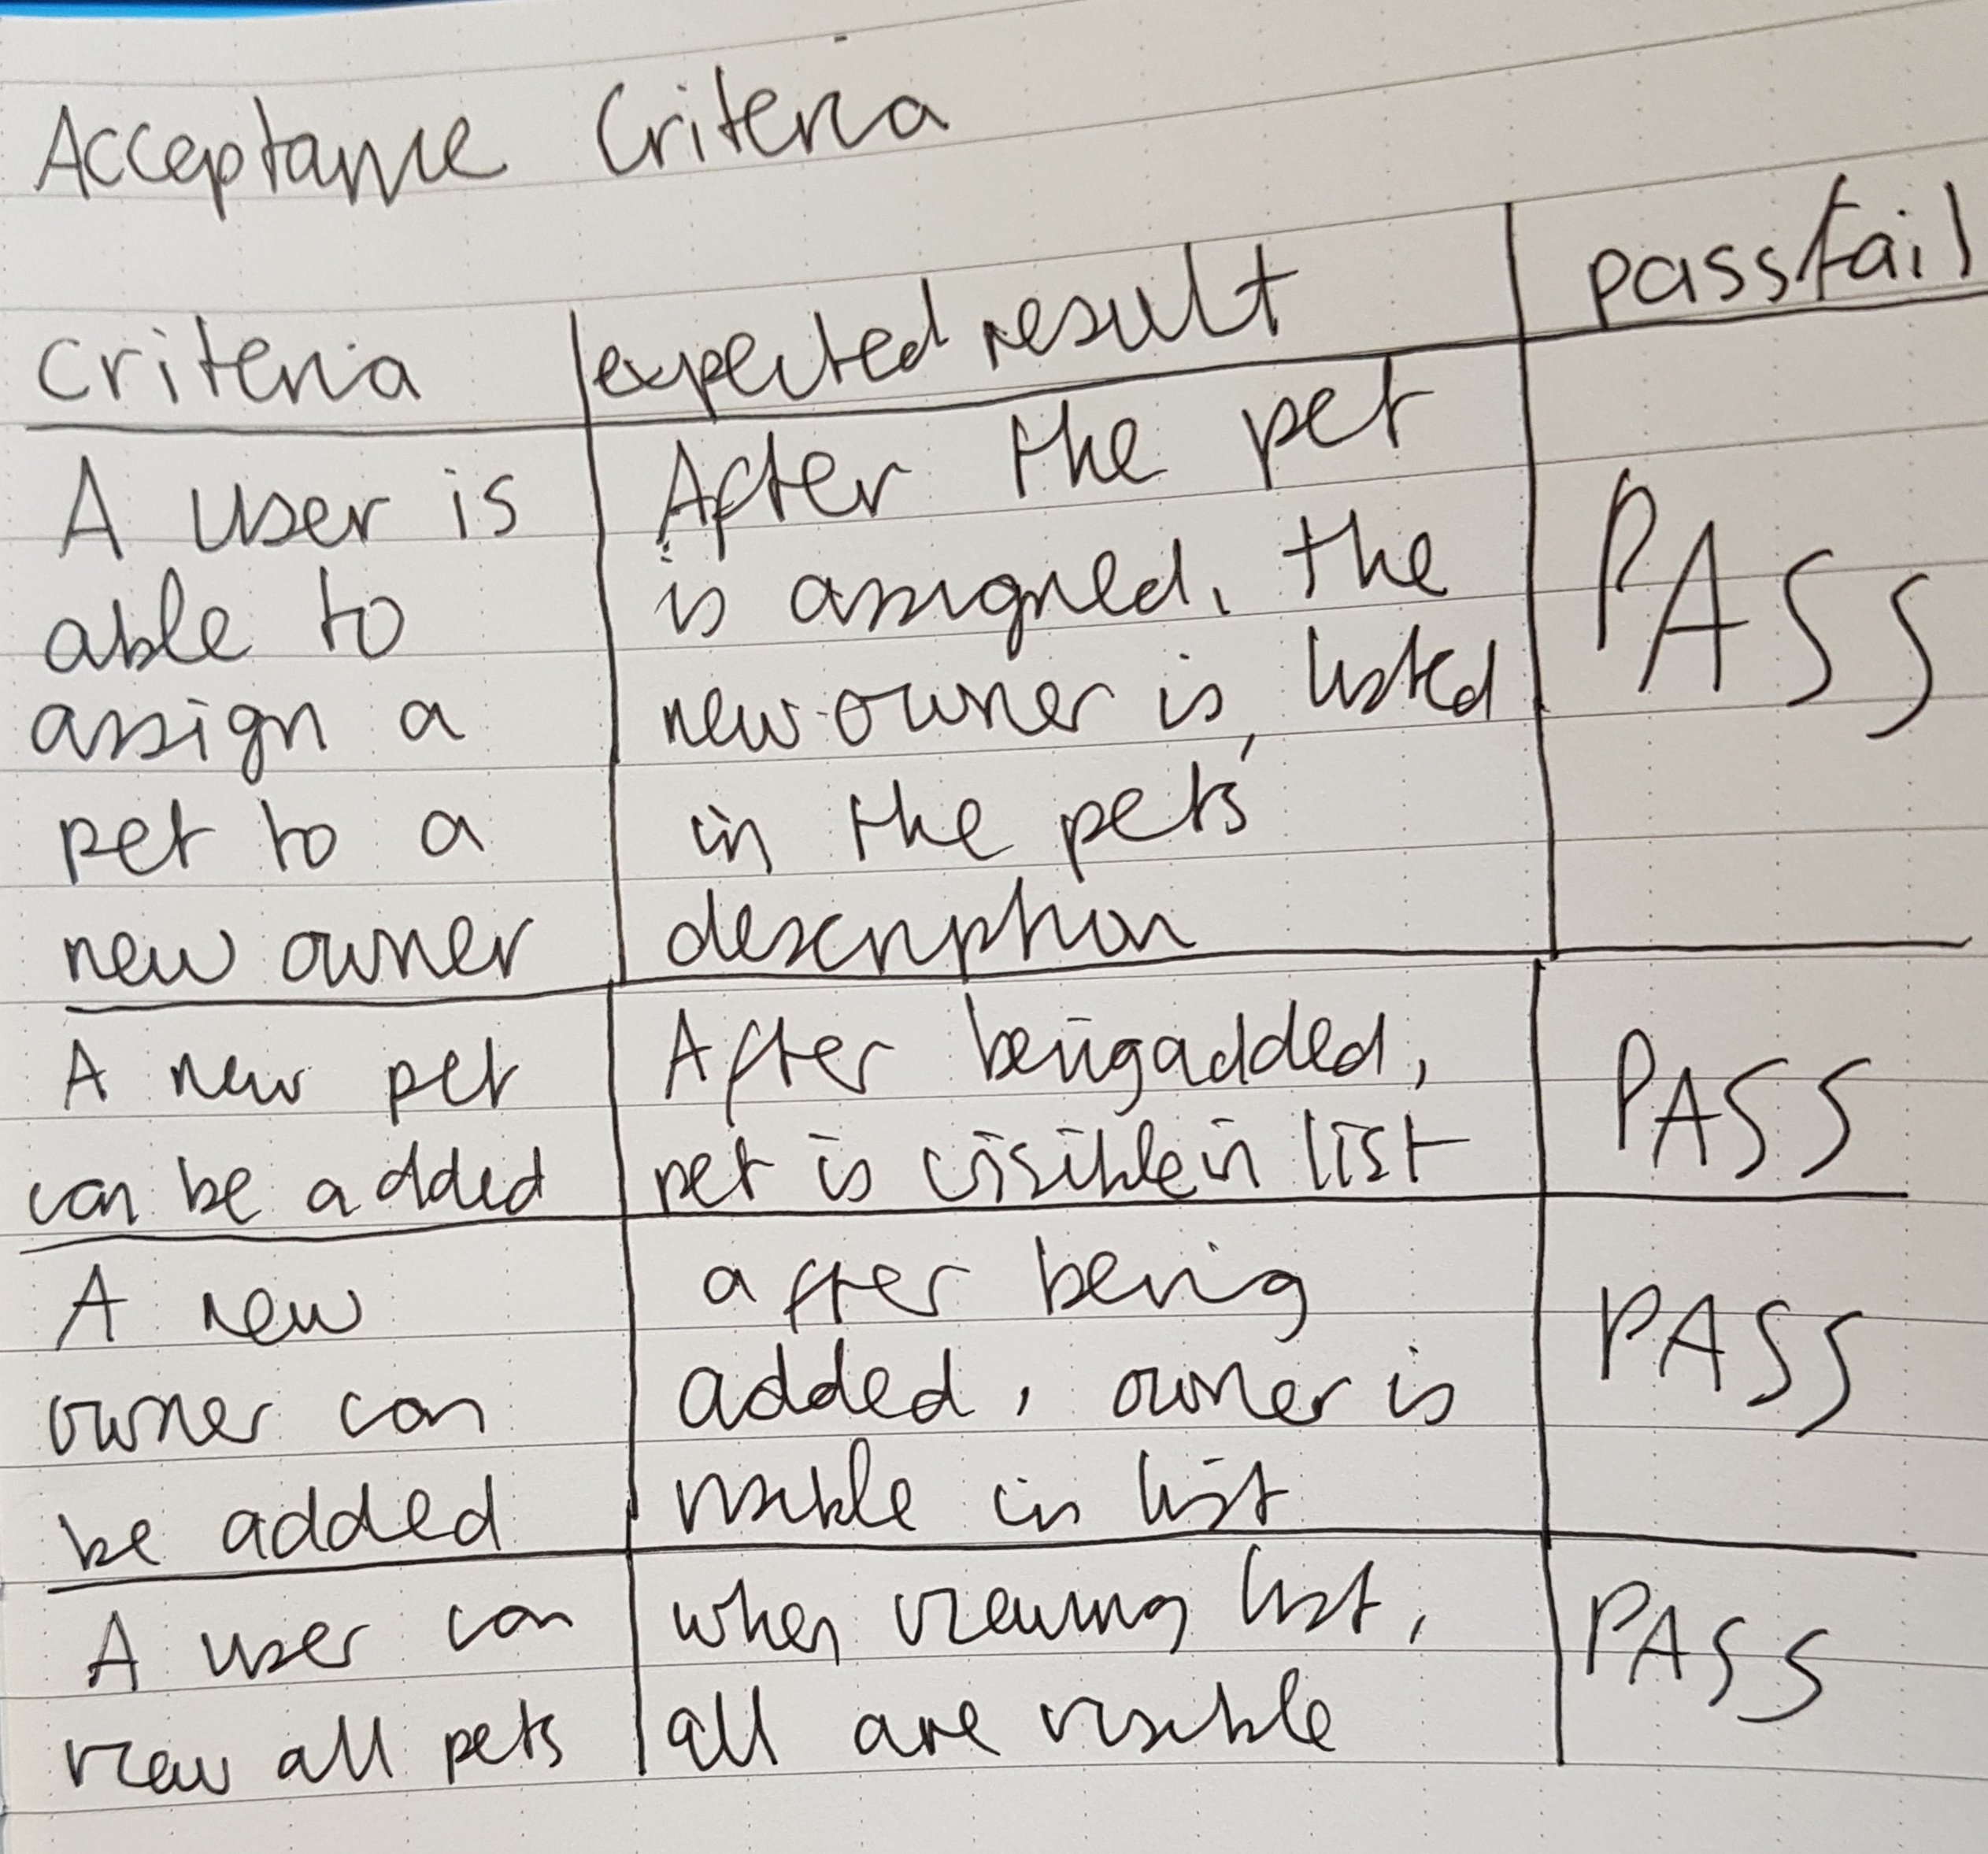 Acceptance Criteria
criteria expected result pass/fail
A user is
able to
assign a
pet to a
new owner
After the pet
is assigned, the
new owner is listed
in the pets'
description
PASS
A new pet
can be added
After being added,
pet is visible in list
PASS
A new
owner can
be added
after being
added, owner is
visible in list
PASS
A user can
view all pets
when viewing list,
all are visible
PASS